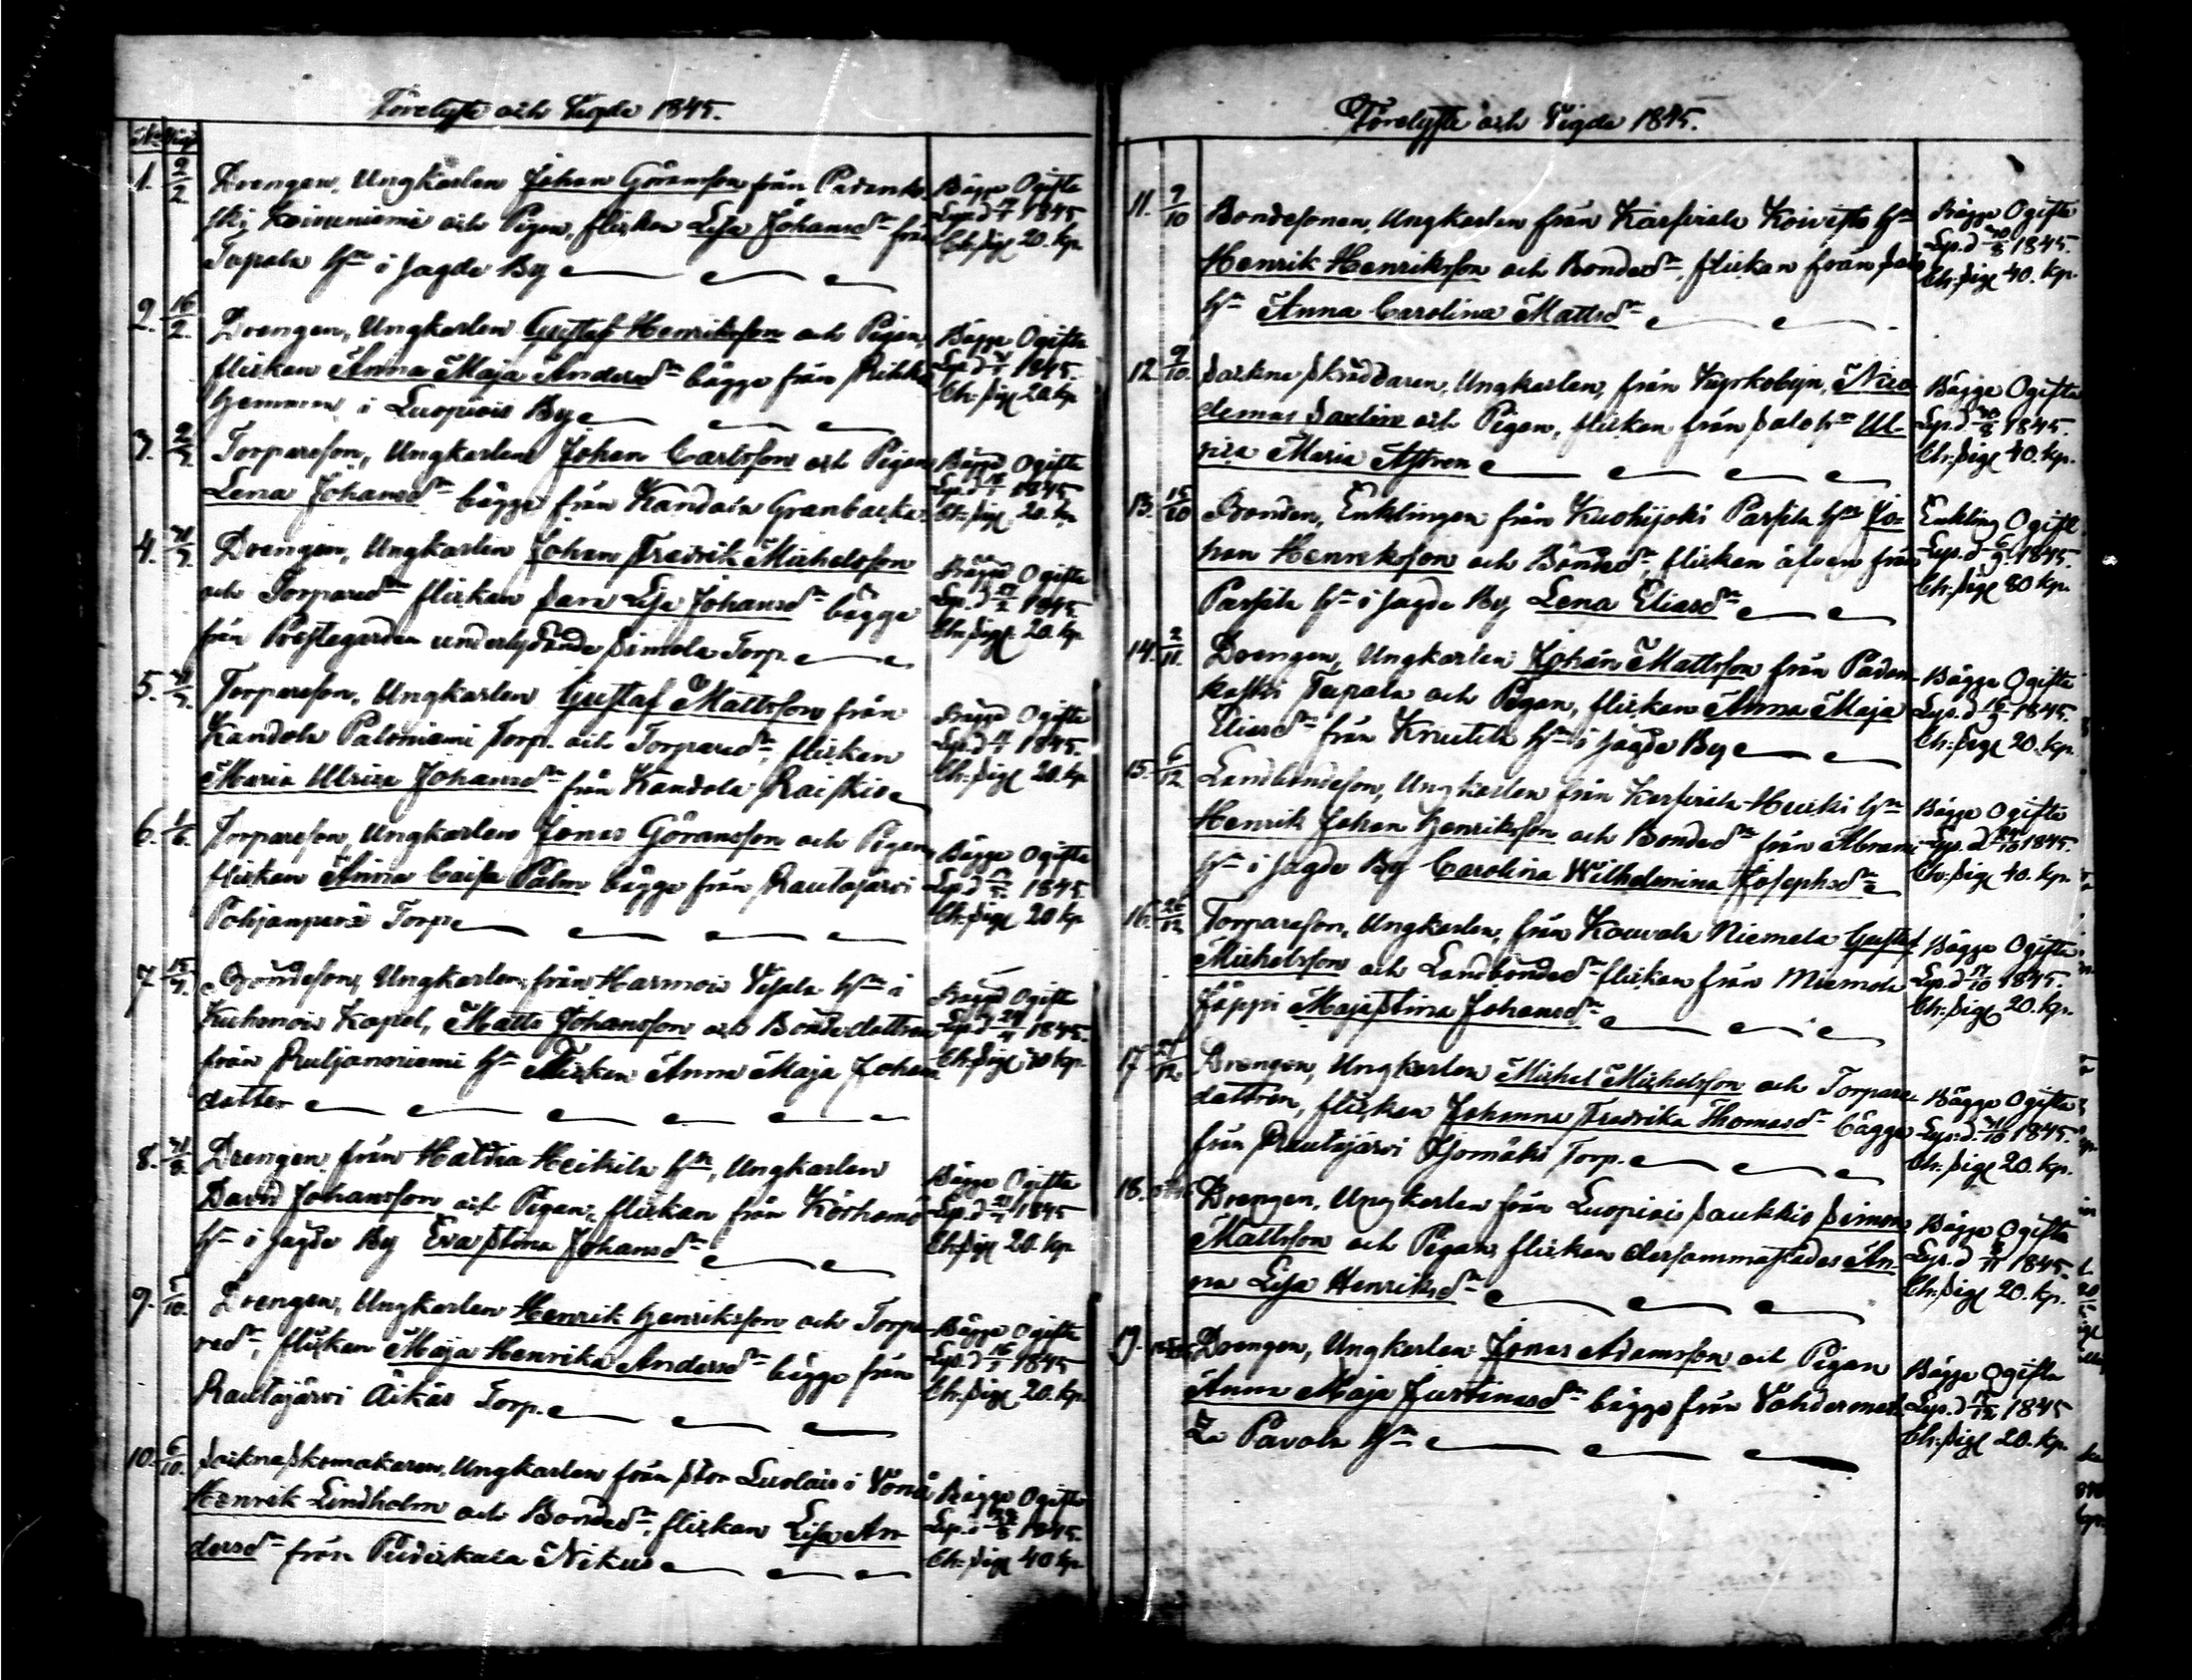 Förelyste och Vigde 1845.
No Vigd
1. 2/2 Drengen, Ungkarlen Johan Göransson från Padanko-
ski Koivuniemi och Pigan, flickan Lisa Johansdr från
Tapola hn i sagde By
Bägge Ogifta
Lys.d 1845
Ch. Sigl 20. kp.
2. 16/2. Drengen, Ungkarlen Gustaf Henriksson och Pigan,
flickan Anna Maja Andersdr bägge från Rikkis
hemman i Luopiois By
Bägge Ogifta
Lys.d 1845.
Ch. Sigl 20 kp
3. Torparson, Ungkarlen Johan Carlsson och Pigan
Lena Johansdr bägge från Kandola Granbacka
Bägge Ogifta
Lys.d 1845
Ch. Sigl. 20. kp
4. Drengen, Ungkarlen Johan Fredrik Michelsson
och Torparedr flickan Sara Lisa Johansdr bägge
från Prestegården underlydande Simola Torp.
Bägge Ogifta
Lys.d 1845
Ch. Sigl. 20. kp
5. Torparson, Ungkarlen Gustaf Mattsson från
Kandola Paloniemi Torp. och Torparedr, flickan
Maria Ulrica Johansdr från Kandola Raiskis
Bägge Ogifta
Lys.d 1845.
Ch. Sigl 20. kp
6. 1/6. Torparson, Ungkarlen Jonas Göransson och Pigan,
flickan Anna Caisa Palm bägge från Rautajärvi
Pohjanperä Torp
Bägge Ogifta
Lys.d 1845
Ch. Sigl 20 kp
7. Bondeson, Ungkarlen från Harmois Visala hn i
Kuhmois Kapel, Matts Johansson och Bondedottren
från Puljanniemi hn Flickan Anna Maja Johans
dotter
Bägge Ogifta
Lys.d 1845.
Ch. Sigl 40 kp.
8. Drengen från Haltia Heikilä hn, Ungkarlen
David Johansson och Pigan, flickan från Körhämö
hn i sagde By Eva Stina Johansdr
Bägge Ogifta
Lys.d 1845
Ch. Sigl 20. kp
9. 5/10. Drengen, Ungkarlen Henrik Henriksson och Torpa-
redr, flickan Maja Henrika Andersdr bägge från
Rautajärvi Äikäs Torp.
Bägge Ogifta
Lys.d 1845
Ch. Sigl 20. kp.
10. 6/10. Sockneskomakaren, Ungkarlen från Stor Luolais i Vånå
Henrik Lindholm och Bondedr, flickan Lisa An-
dersdr från Puutikkala Nikus
Bägge Ogifta
Lys.d 1845.
Ch. Sigl 40 kp.
Förelyste och Vigde 1845.
11. 9/10 Bondesonen, Ungkarlen från Kärfirila Koivisto hn
Henrik Henriksson och Bondedr, flickan från Salo
hn Anna Carolina Mattsdr
Bägge Ogifta
Lys.d 1845.
Ch. Sigl 40. kp.
12. 9/10. Sockne Skräddaren, Ungkarlen, från Kyrkobyn, Nico-
demas Saxlin och Pigan, flickan från Salo hn Ul-
rica Maria Åström
Bägge Ogifta
Lys.d 1845.
Ch. Sigl 40. kp.
13. 15/10 Bonden, Enklingen från Kuohijoki Parsila hn Jo-
han Henriksson och Bondedr, flickan äfven från
Parsila hn i sagde By Lena Eliasdr
Enkling Ogift
Lys.d 1845.
Ch. Sigl 80 kp.
14. 2/11. Drengen, Ungkarlen Johan Mattsson från Padan-
koski Tapola och Pigan, flickan Anna Maja
Eliasdr från Knuutila hn i sagde By
Bägge Ogifta
Lys.d 1845.
Ch. Sigl 20. kp.
15. 6/12 Landbondeson, Ungkarlen från Karfirila Heicki hn
Henrik Johan Henriksson och Bondedr från Abrami
hn i sagde By Carolina Wilhelmina Josephsdr
Bägge Ogifta
Lys.d 1845.
Ch. Sigl 40. kp.
16. Torparson, Ungkarlen, från Kouvola Niemelä Gustaf
Michelsson och Landbondedr flickan från Miemola
Jäppi Maja Stina Johansdr
Bägge Ogifta
Lys.d 1845.
Ch. Sigl 20. kp.
17. Drengen, Ungkarlen Michel Michelsson och Torpare-
dottren, flickan Johanna Fredrika Thomasdr bägge
från Rautajärvi Ojomäki Torp.
Bägge Ogifta
Lys.d 1845.
Ch. Sigl 20. kp.
18. Drengen, Ungkarlen från Luopiois Saukkis Simon
Mattsson och Pigan, flickan dersammastädes An-
na Lisa Henriksdr
Bägge Ogifta
Lys.d 1845.
Ch. Sigl 20. kp.
19. Drengen, Ungkarlen Jonas Adamsson och Pigan
Anna Maja Justinasdr bägge från Vahdermet-
sä Pavola hn
Bägge Ogifta
Lys.d 1845
Ch. Sigl 20. kp.